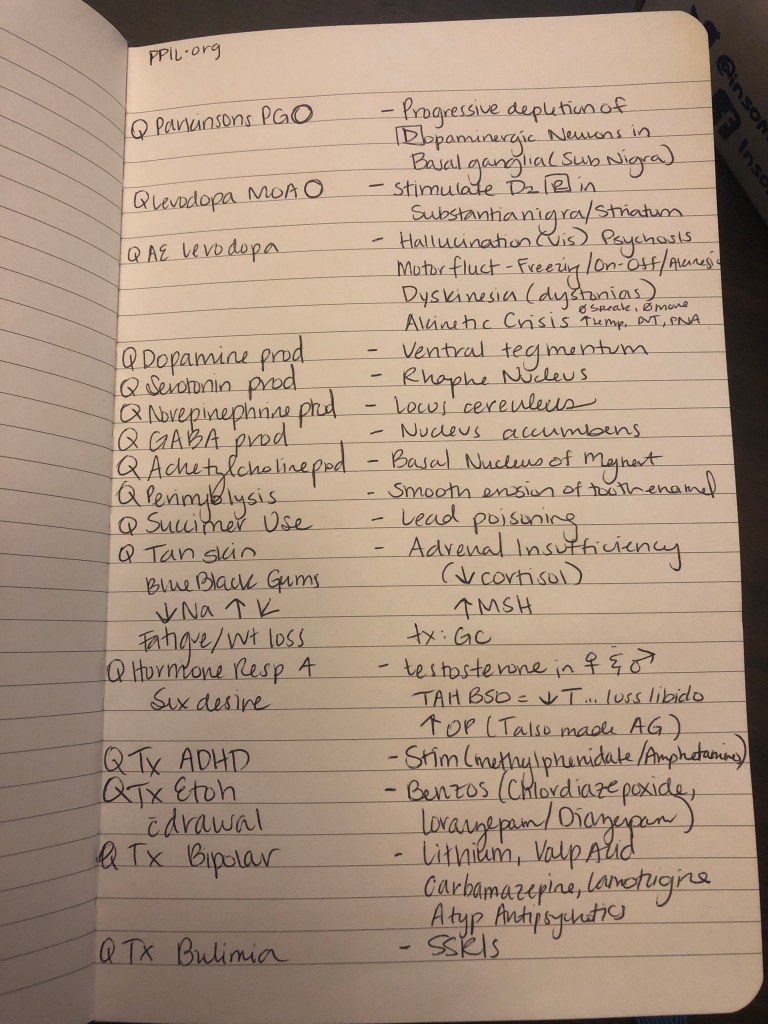 PPIL.org
Q Parkinsons PGO - Progressive depletion of
Dopaminergic Neurons in
Basal ganglia (Sub Nigra)
Q Levodopa MOAO - stimulate D2 R in
Substantia nigra/Striatum
Q AE Levodopa - Hallucination (vis) Psychosis
Motor fluct - Freezing/On-Off/Akinesia
Dyskinesia (dystonias)
Akinetic Crisis Ø speak, Ø move
↑temp, DVT, PNA
Q Dopamine prod - Ventral tegmentum
Q Serotonin prod - Rhaphe Nucleus
Q Norepinephrine prod - Locus cereuleus
Q GABA prod - Nucleus accumbens
Q Achetylcholine prod - Basal Nucleus of Mynert
Q Perimylysis - Smooth erosion of tooth enamel
Q Succimer Use - Lead poisoning
Q Tan skin - Adrenal Insufficiency
Blue Black Gums (↓cortisol)
↓Na ↑K ↑MSH
Fatigue/Wt loss tx: GC
Q Hormone Resp 4 - testosterone in ♀ & ♂
Sex desire TAH BSO = ↓T... loss libido
↑OP (T also made AG)
Q Tx ADHD - Stim (methylphenidate/Amphetamine)
Q Tx Etoh - Benzos (Chlordiazepoxide,
c̄drawal Lorazepam/Diazepam)
Q Tx Bipolar - Lithium, Valp Acid
Carbamazepine, Lamotrigine
Atyp Antipsychotics
Q Tx Bulimia - SSRIs
@insom
f Inso